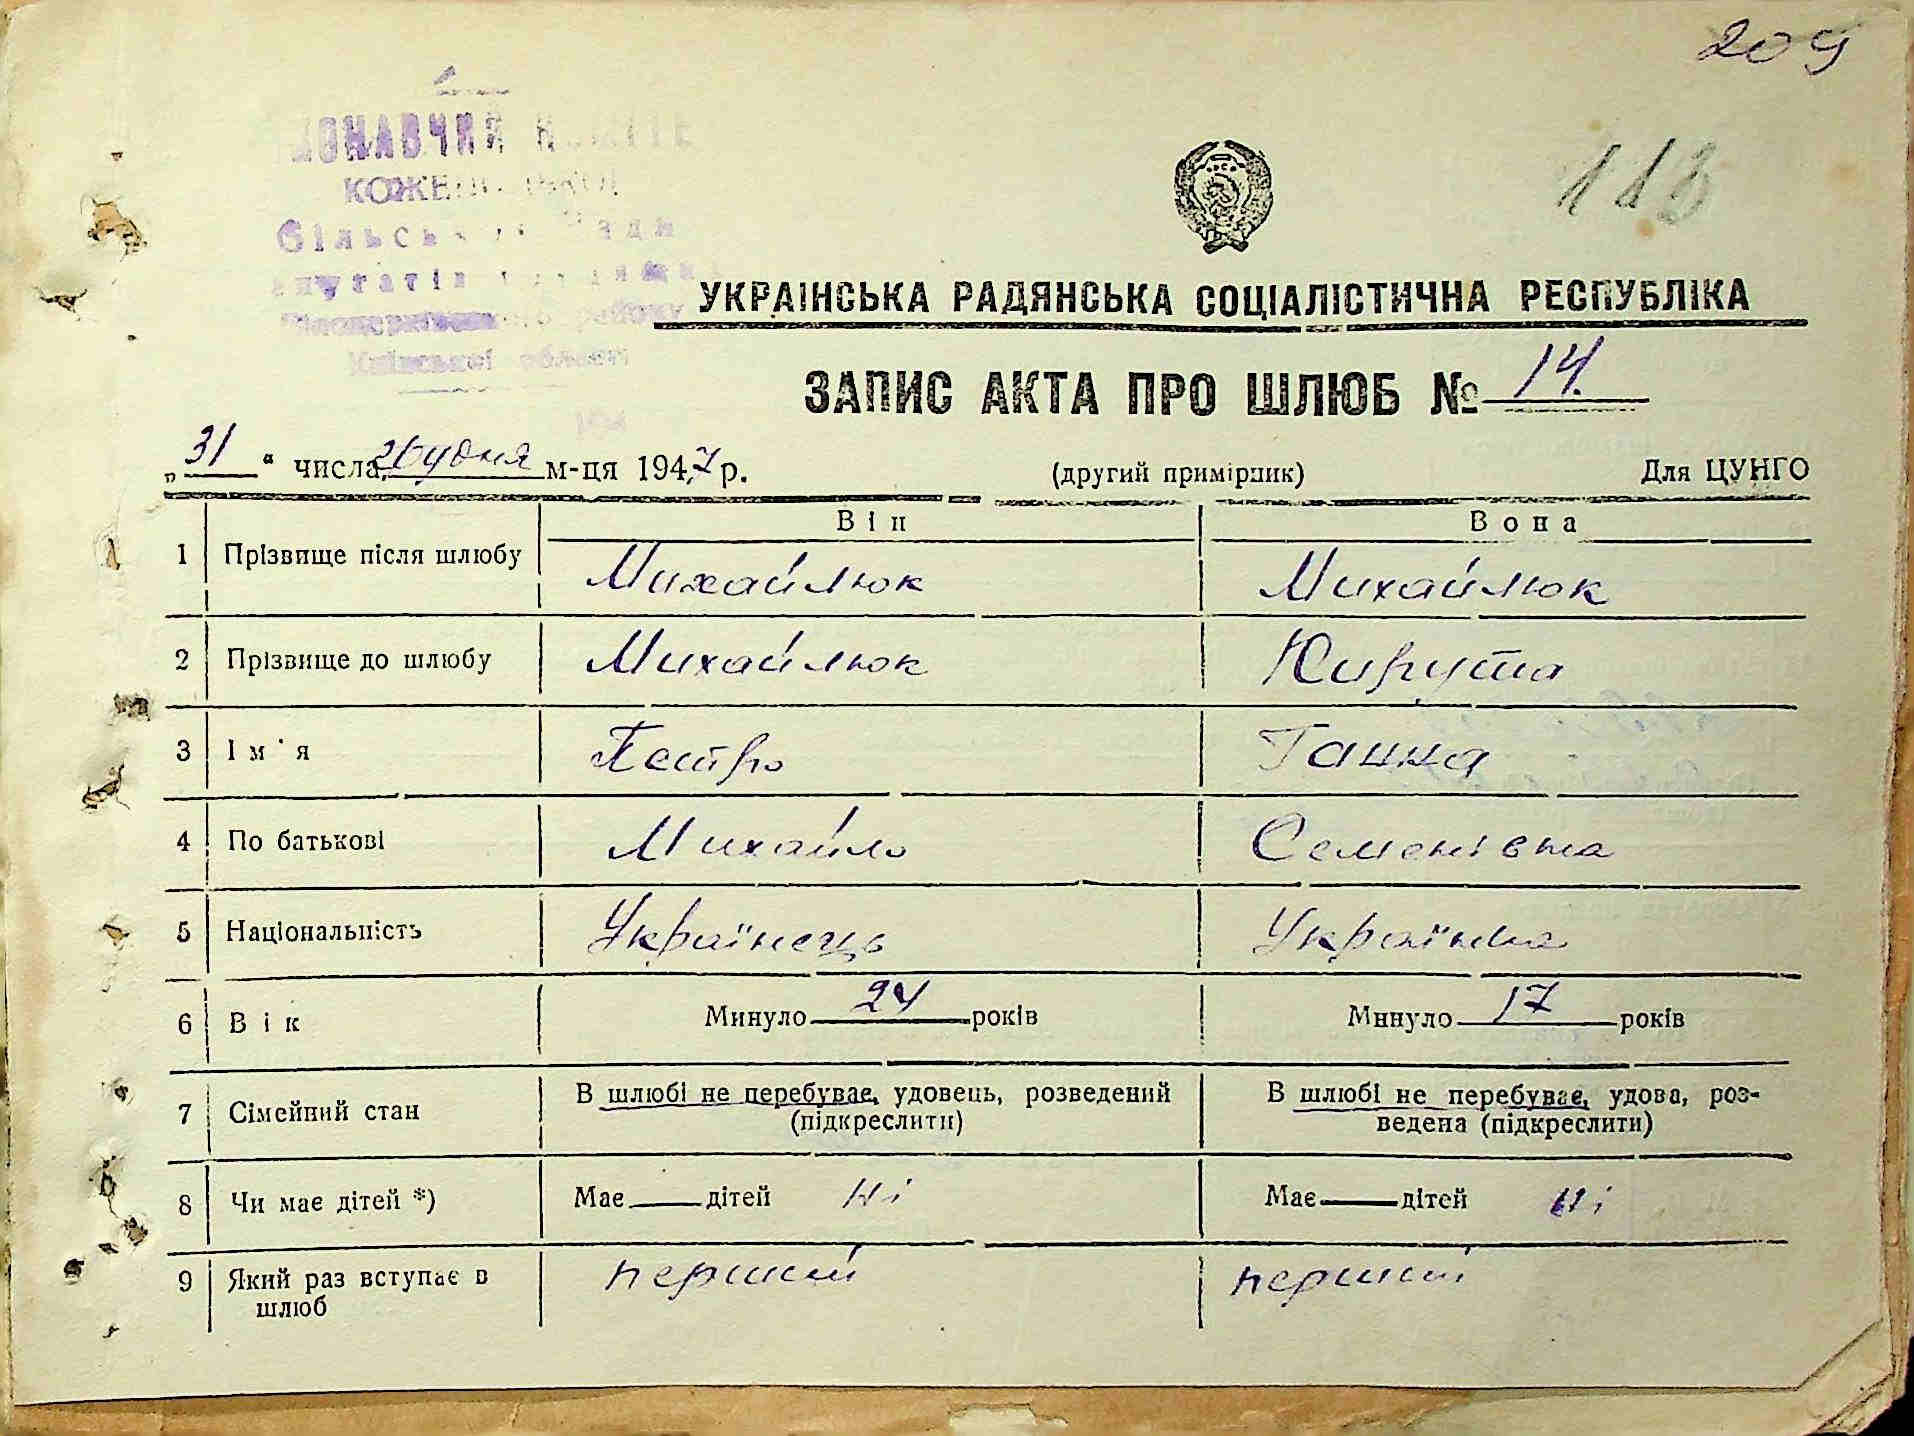 209
113
КОЖЕ
УКРАІНСЬКА РАДЯНСЬКА СОЦІАЛІСТИЧНА РЕСПУБЛІКА
ЗАПИС АКТА ПРО ШЛЮБ № 14.
„ 31 “ числа грудня м-ця 1947 р. (другий примірник) Для ЦУНГО
Він Вона
1 Прізвище після шлюбу Михайлюк Михайлюк
2 Прізвище до шлюбу Михайлюк Кирута
3 Ім'я Петро Ганна
4 По батькові Михайло Семенівна
5 Національність Українець Українка
6 Вік Минуло 24 років Минуло 17 років
7 Сімейний стан В шлюбі не перебуває, удовець, розведений (підкреслити) В шлюбі не перебуває, удова, роз-
ведена (підкреслити)
8 Чи має дітей *) Має дітей ні Має дітей ні
9 Який раз вступає в шлюб перший перший